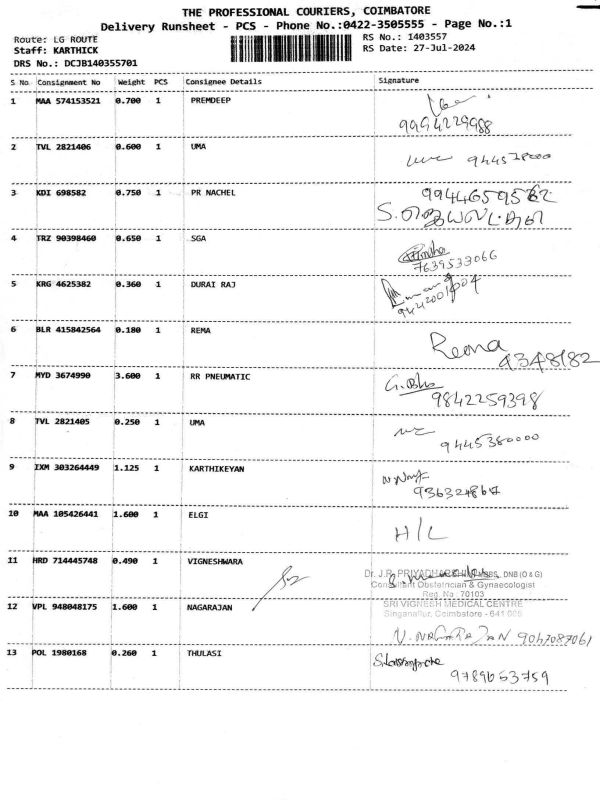 THE PROFESSIONAL COURIERS, COIMBATORE
Delivery Runsheet - PCS - Phone No.:0422-3505555 - Page No.:1
Route: LG ROUTE RS No.: 1403557
Staff: KARTHICK RS Date: 27-Jul-2024
DRS No.: DCJB140355701
S No Consignment No Weight PCS Consignee Details Signature
1 MAA 574153521 0.700 1 PREMDEEP
9994229988
2 TVL 2821406 0.600 1 UMA
3 KDI 698582 0.750 1 PR NACHEL
4 TRZ 90398460 0.650 1 SGA
7639533066
5 KRG 4625382 0.360 1 DURAI RAJ
6 BLR 415842564 0.180 1 REMA
Rema
9348182
7 MYD 3674990 3.600 1 RR PNEUMATIC
9842259398
8 TVL 2821405 0.250 1 UMA
9445380000
9 IXM 303264449 1.125 1 KARTHIKEYAN
10 MAA 105426441 1.600 1 ELGI
H/L
11 HRD 714445748 0.490 1 VIGNESHWARA
Dr. J.R. PRIYADHARSHINI, MBBS., DNB (O & G)
Consultant Obstetrician & Gynaecologist
Reg. No : 70103
12 VPL 948048175 1.600 1 NAGARAJAN
SRI VIGNESH MEDICAL CENTRE
Singanallur, Coimbatore - 641 005
V. NAGARAJAN 9047087061
13 POL 1980168 0.260 1 THULASI
9789653759